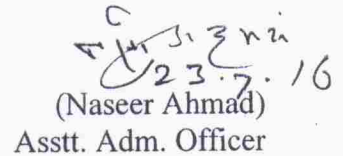 23.7.16
(Naseer Ahmad)
Asstt. Adm. Officer